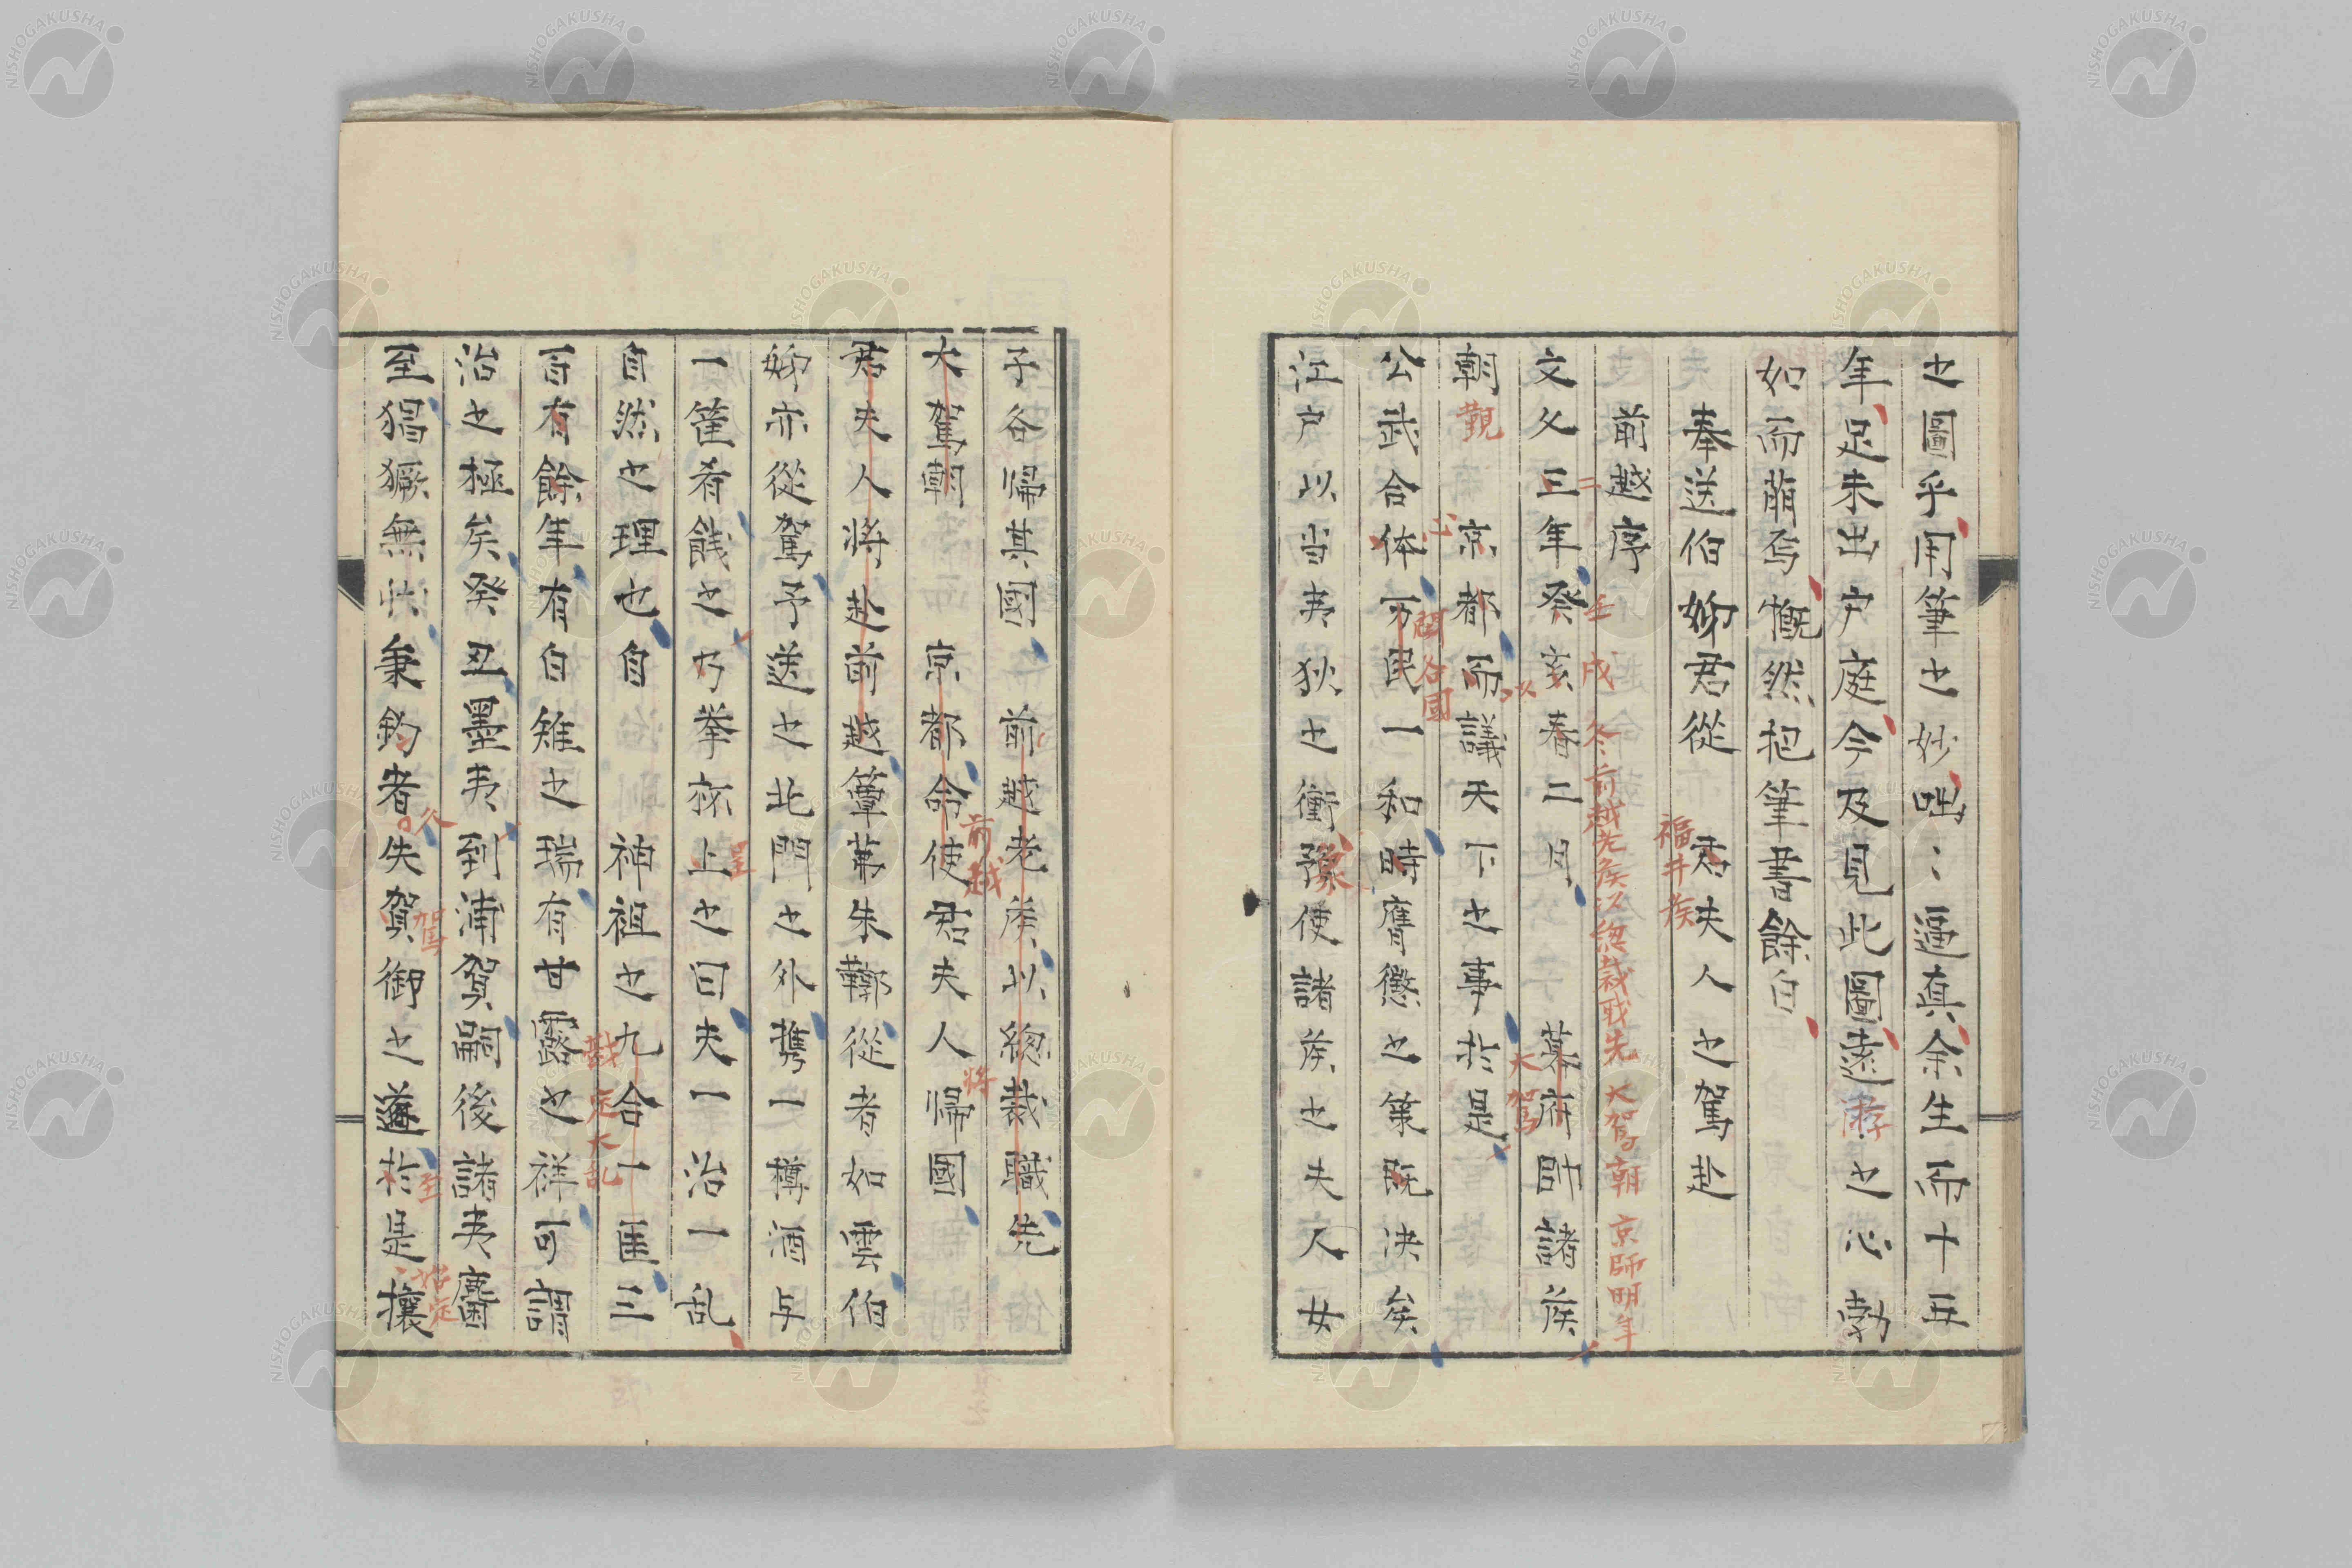 之圖乎用筆之妙咄〻逼真余生而十五
年足未出戶庭今及見此圖遠游之心勃
如而萠焉慨然把筆書餘白
奉送伯姉君從　君夫人之駕赴
福井侯
前越序
壬戌冬前越老侯以総裁职先大駕朝京師明年
文久三年癸亥春二月　幕府帥諸侯
二
大駕
朝　京都而議天下之事於是
覲
以
公武合体万民一和時膺懲之策既决矣
闔谷國
江戸以当夷狄之衝豫使諸侯之夫人女
子各帰其國　前越老侯以総裁職先
大駕朝　京都命使君夫人帰國
前越
將
君夫人將赴前越簟茀朱鞹從者如雲伯
姉亦從駕予送之此門之外攜一樽酒与
一筐肴餞之乃擧祢上之曰夫一治一乱
自然之理也自　神祖之九合一匡三
戡定大乱
百有餘年有白雉之瑞有甘露之祥可謂
治之極矣癸丑墨夷到浦賀嗣後諸夷麕
至猖獗無忕秉鈞者失賀御之道於是攘
駕
至
NISHOGAKUSHA